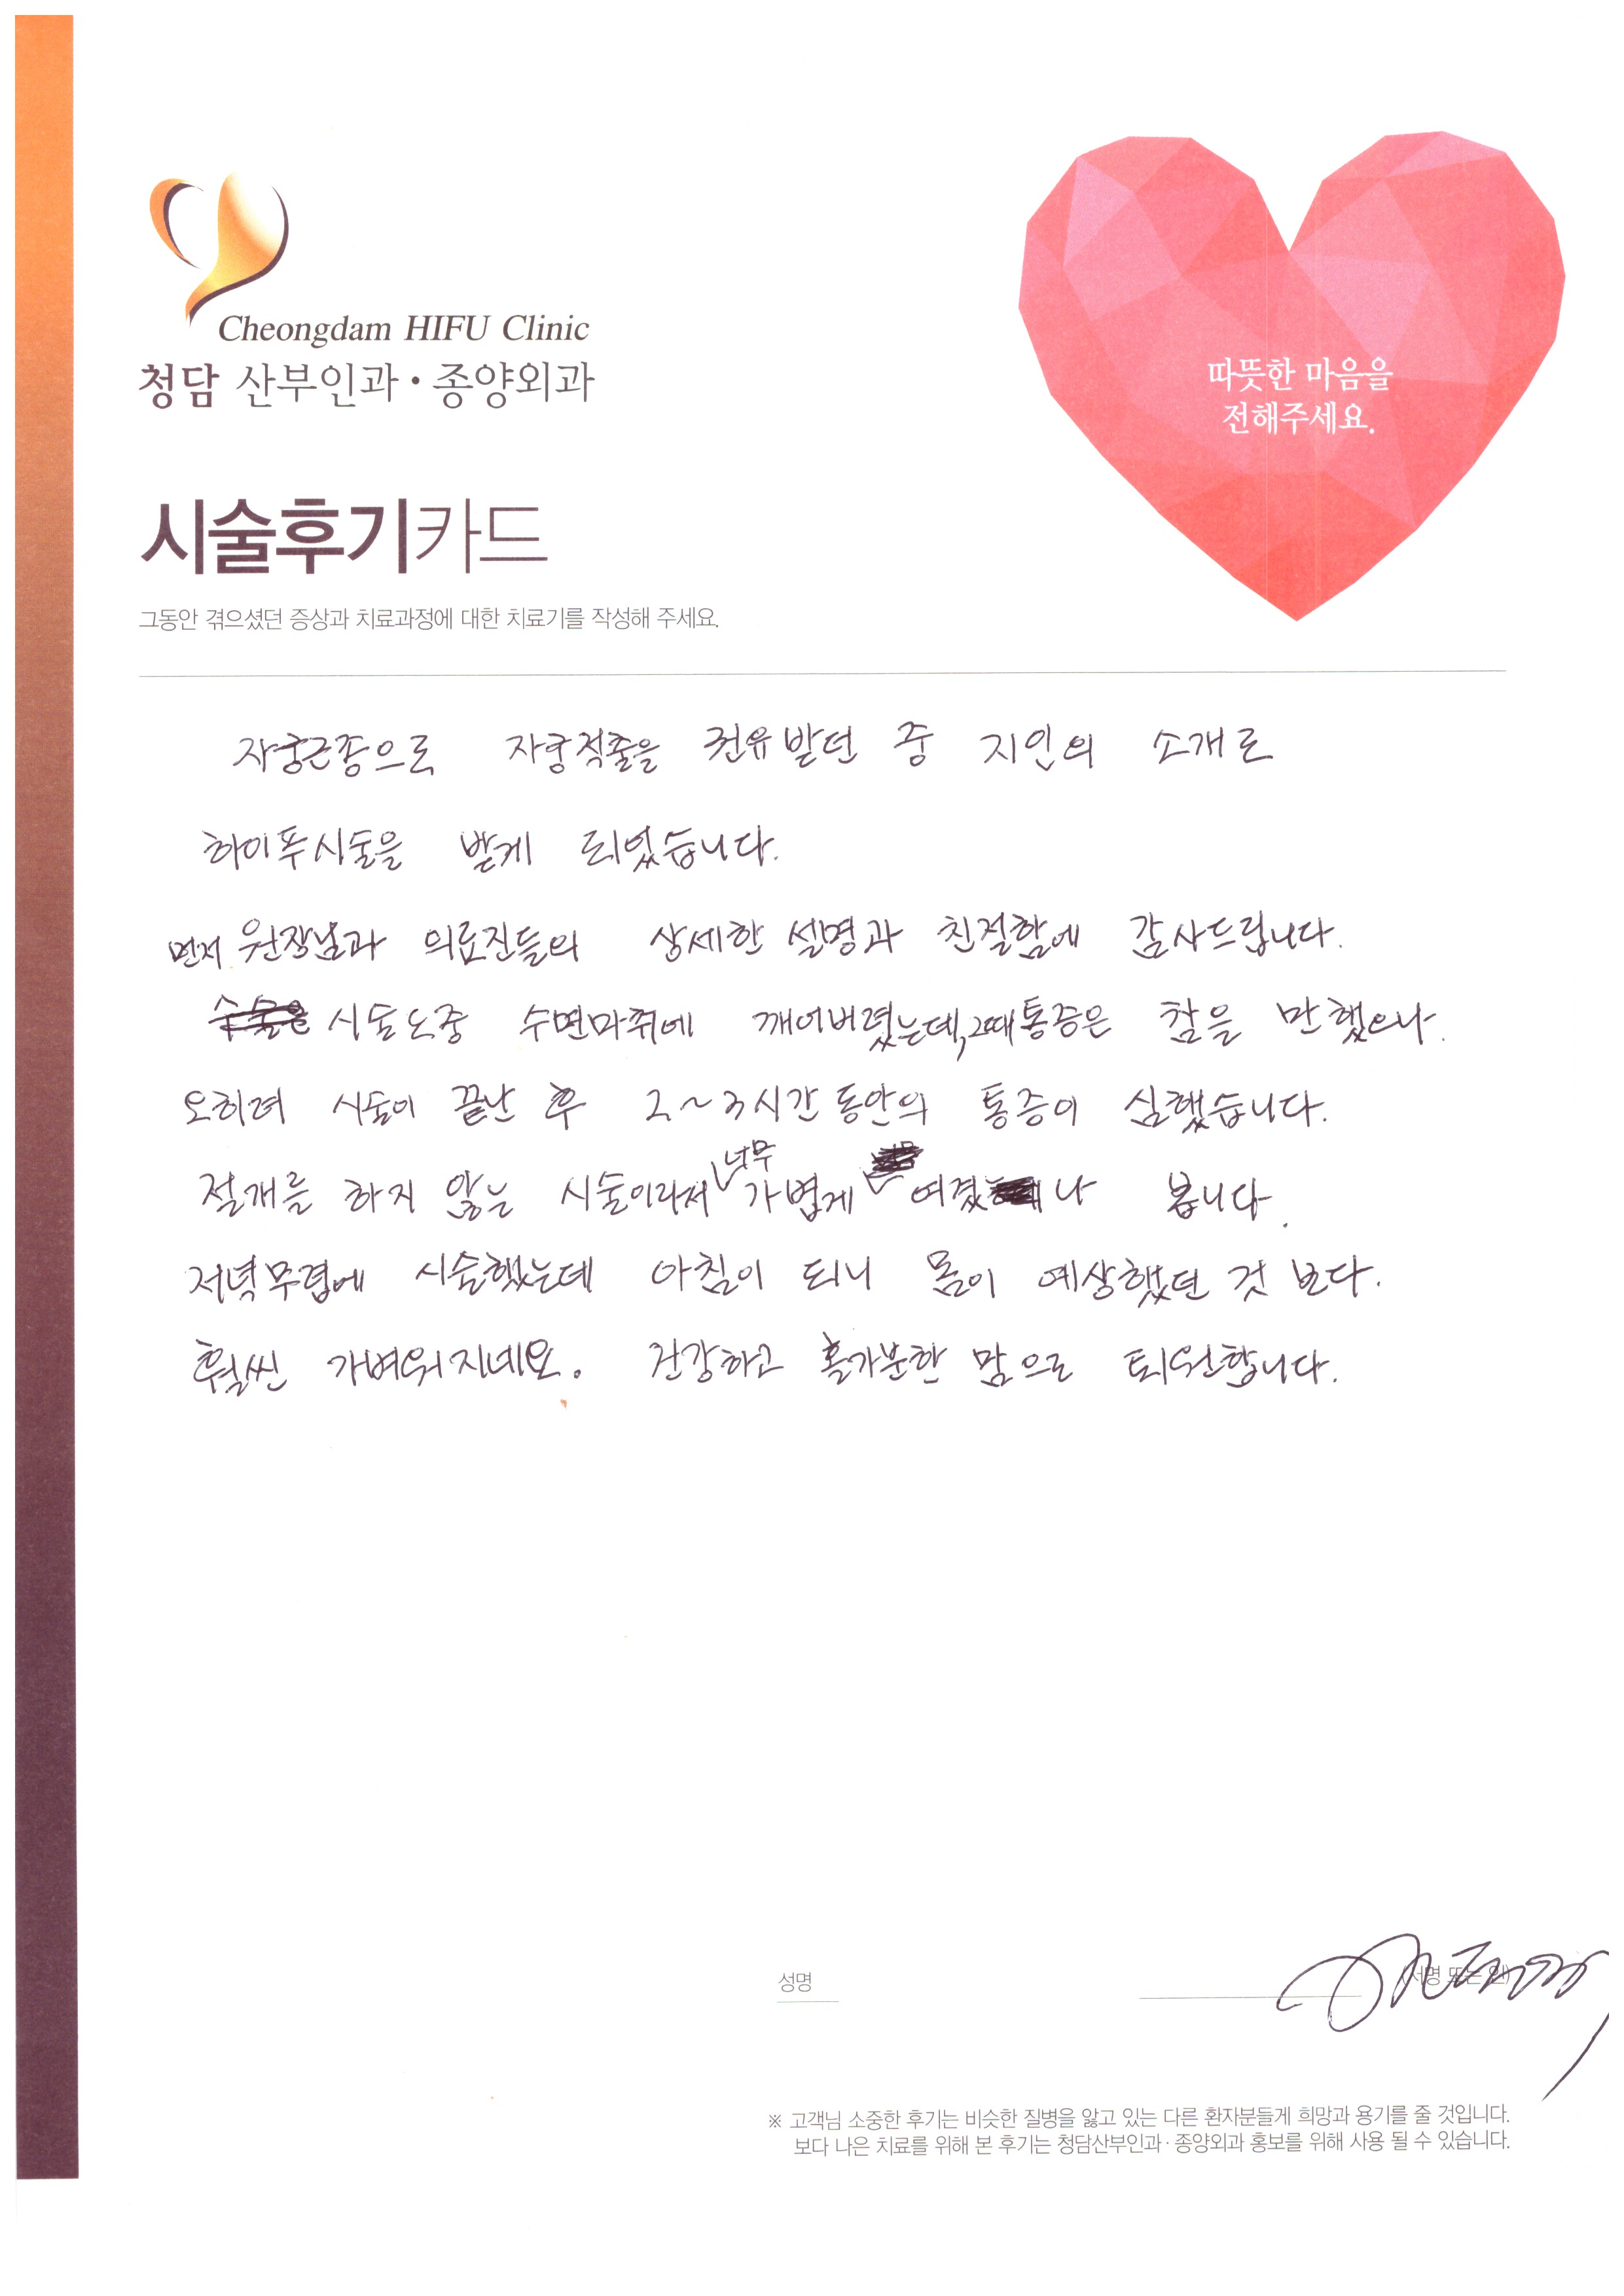 Cheongdam HIFU Clinic
청담 산부인과·종양외과
따뜻한 마음을
전해주세요.
시술후기카드
그동안 겪으셨던 증상과 치료과정에 대한 치료기를 작성해 주세요.
자궁근종으로 자궁적출을 권유받던 중 지인의 소개로
하이푸시술을 받게 되었습니다.
먼저 원장님과 의료진들의 상세한 설명과 친절함에 감사드립니다.
시술도중 수면마취에 깨어버렸는데, 그때통증은 참을 만했으나.
오히려 시술이 끝난 후 2~3시간 동안의 통증이 심했습니다.
절개를 하지 않는 시술이라서 너무 가볍게 여겼나 봅니다.
저녁무렵에 시술했는데 아침이 되니 몸이 예상했던 것 보다.
훨씬 가벼워지네요. 건강하고 홀가분한 맘으로 퇴원합니다.
성명
(서명 또는 인)
※ 고객님 소중한 후기는 비슷한 질병을 앓고 있는 다른 환자분들게 희망과 용기를 줄 것입니다.
보다 나은 치료를 위해 본 후기는 청담산부인과·종양외과 홍보를 위해 사용 될 수 있습니다.